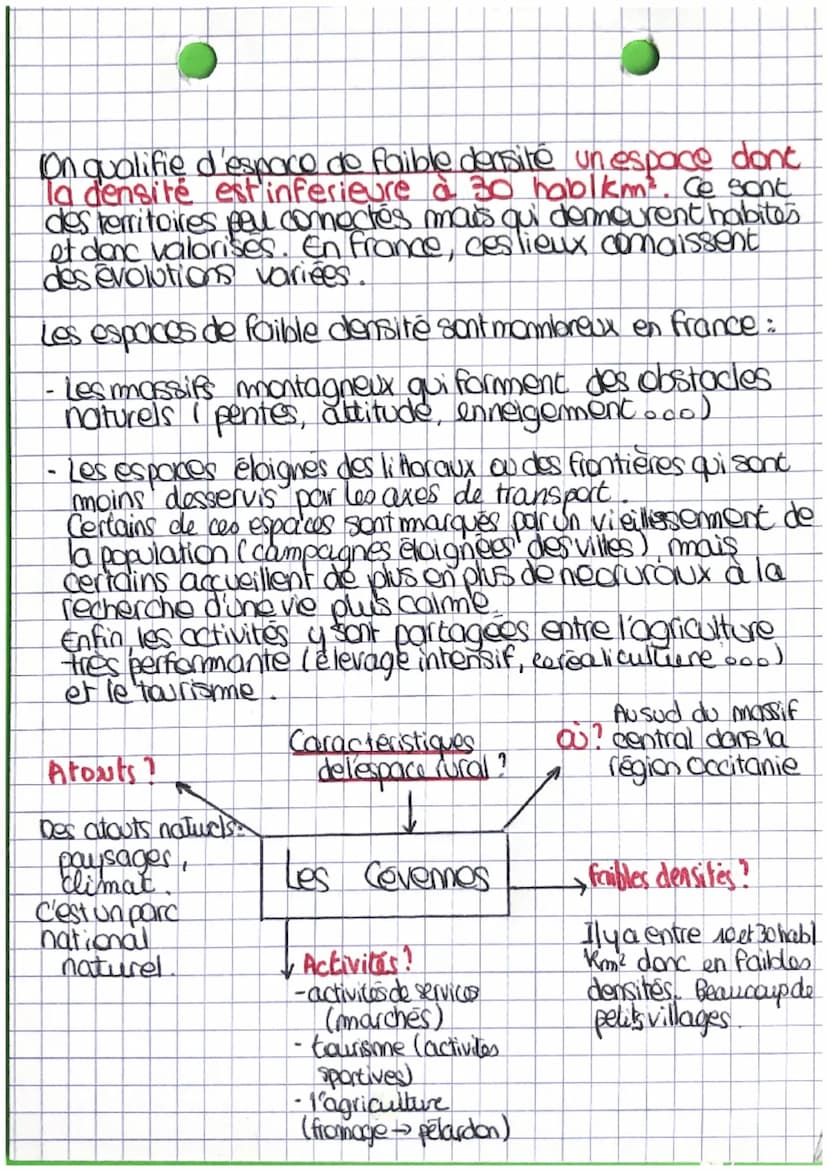 On qualifie d'espace de faible densité un espace dont
la densité est inferieure à 30 hab/km². Ce sont
des territoires peu connectés mais qui demeurent habités
et donc valorisés. En France, ces lieux connaissent
des évolutions variées.
Les espaces de faible densité sont nombreux en france :
- Les massifs montagneux qui forment des obstacles
naturels ( pentes, altitude, enneigement ...)
- Les espaces éloignés des littoraux ou des frontières qui sont
moins desservis par les axes de transport.
Certains de ces espaces sont marqués par un vieillissement de
la population (campagnes éloignées des villes) mais
certains accueillent de plus en plus de neoruraux à la
recherche d'une vie plus calme.
Enfin les activités y sont partagées entre l'agriculture
très performante (élevage intensif, céréaliculture ...)
et le tourisme.
Caractéristiques
de l'espace rural ?
où ? Au sud du massif
central dans la
région Occitanie
Atouts ?
Des atouts naturels:
paysages,
climat.
c'est un parc
national
naturel.
Les Cévennes
faibles densités ?
Il y a entre 10 et 30 hab/
Km² donc en faibles
densités. Beaucoup de
petits villages.
Activités ?
- activités de services
(marchés)
- tourisme (activités
sportives)
- l'agriculture
(fromage → pélardon)